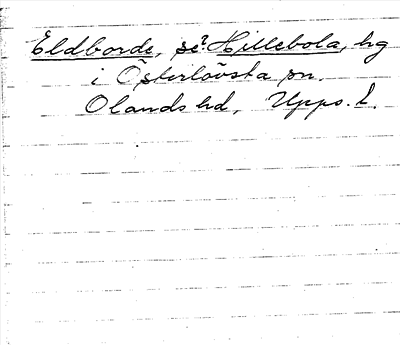 Eldborde, se? Hillebola, hg
i Österlövsta sn.
Olands hd, Upps. l.